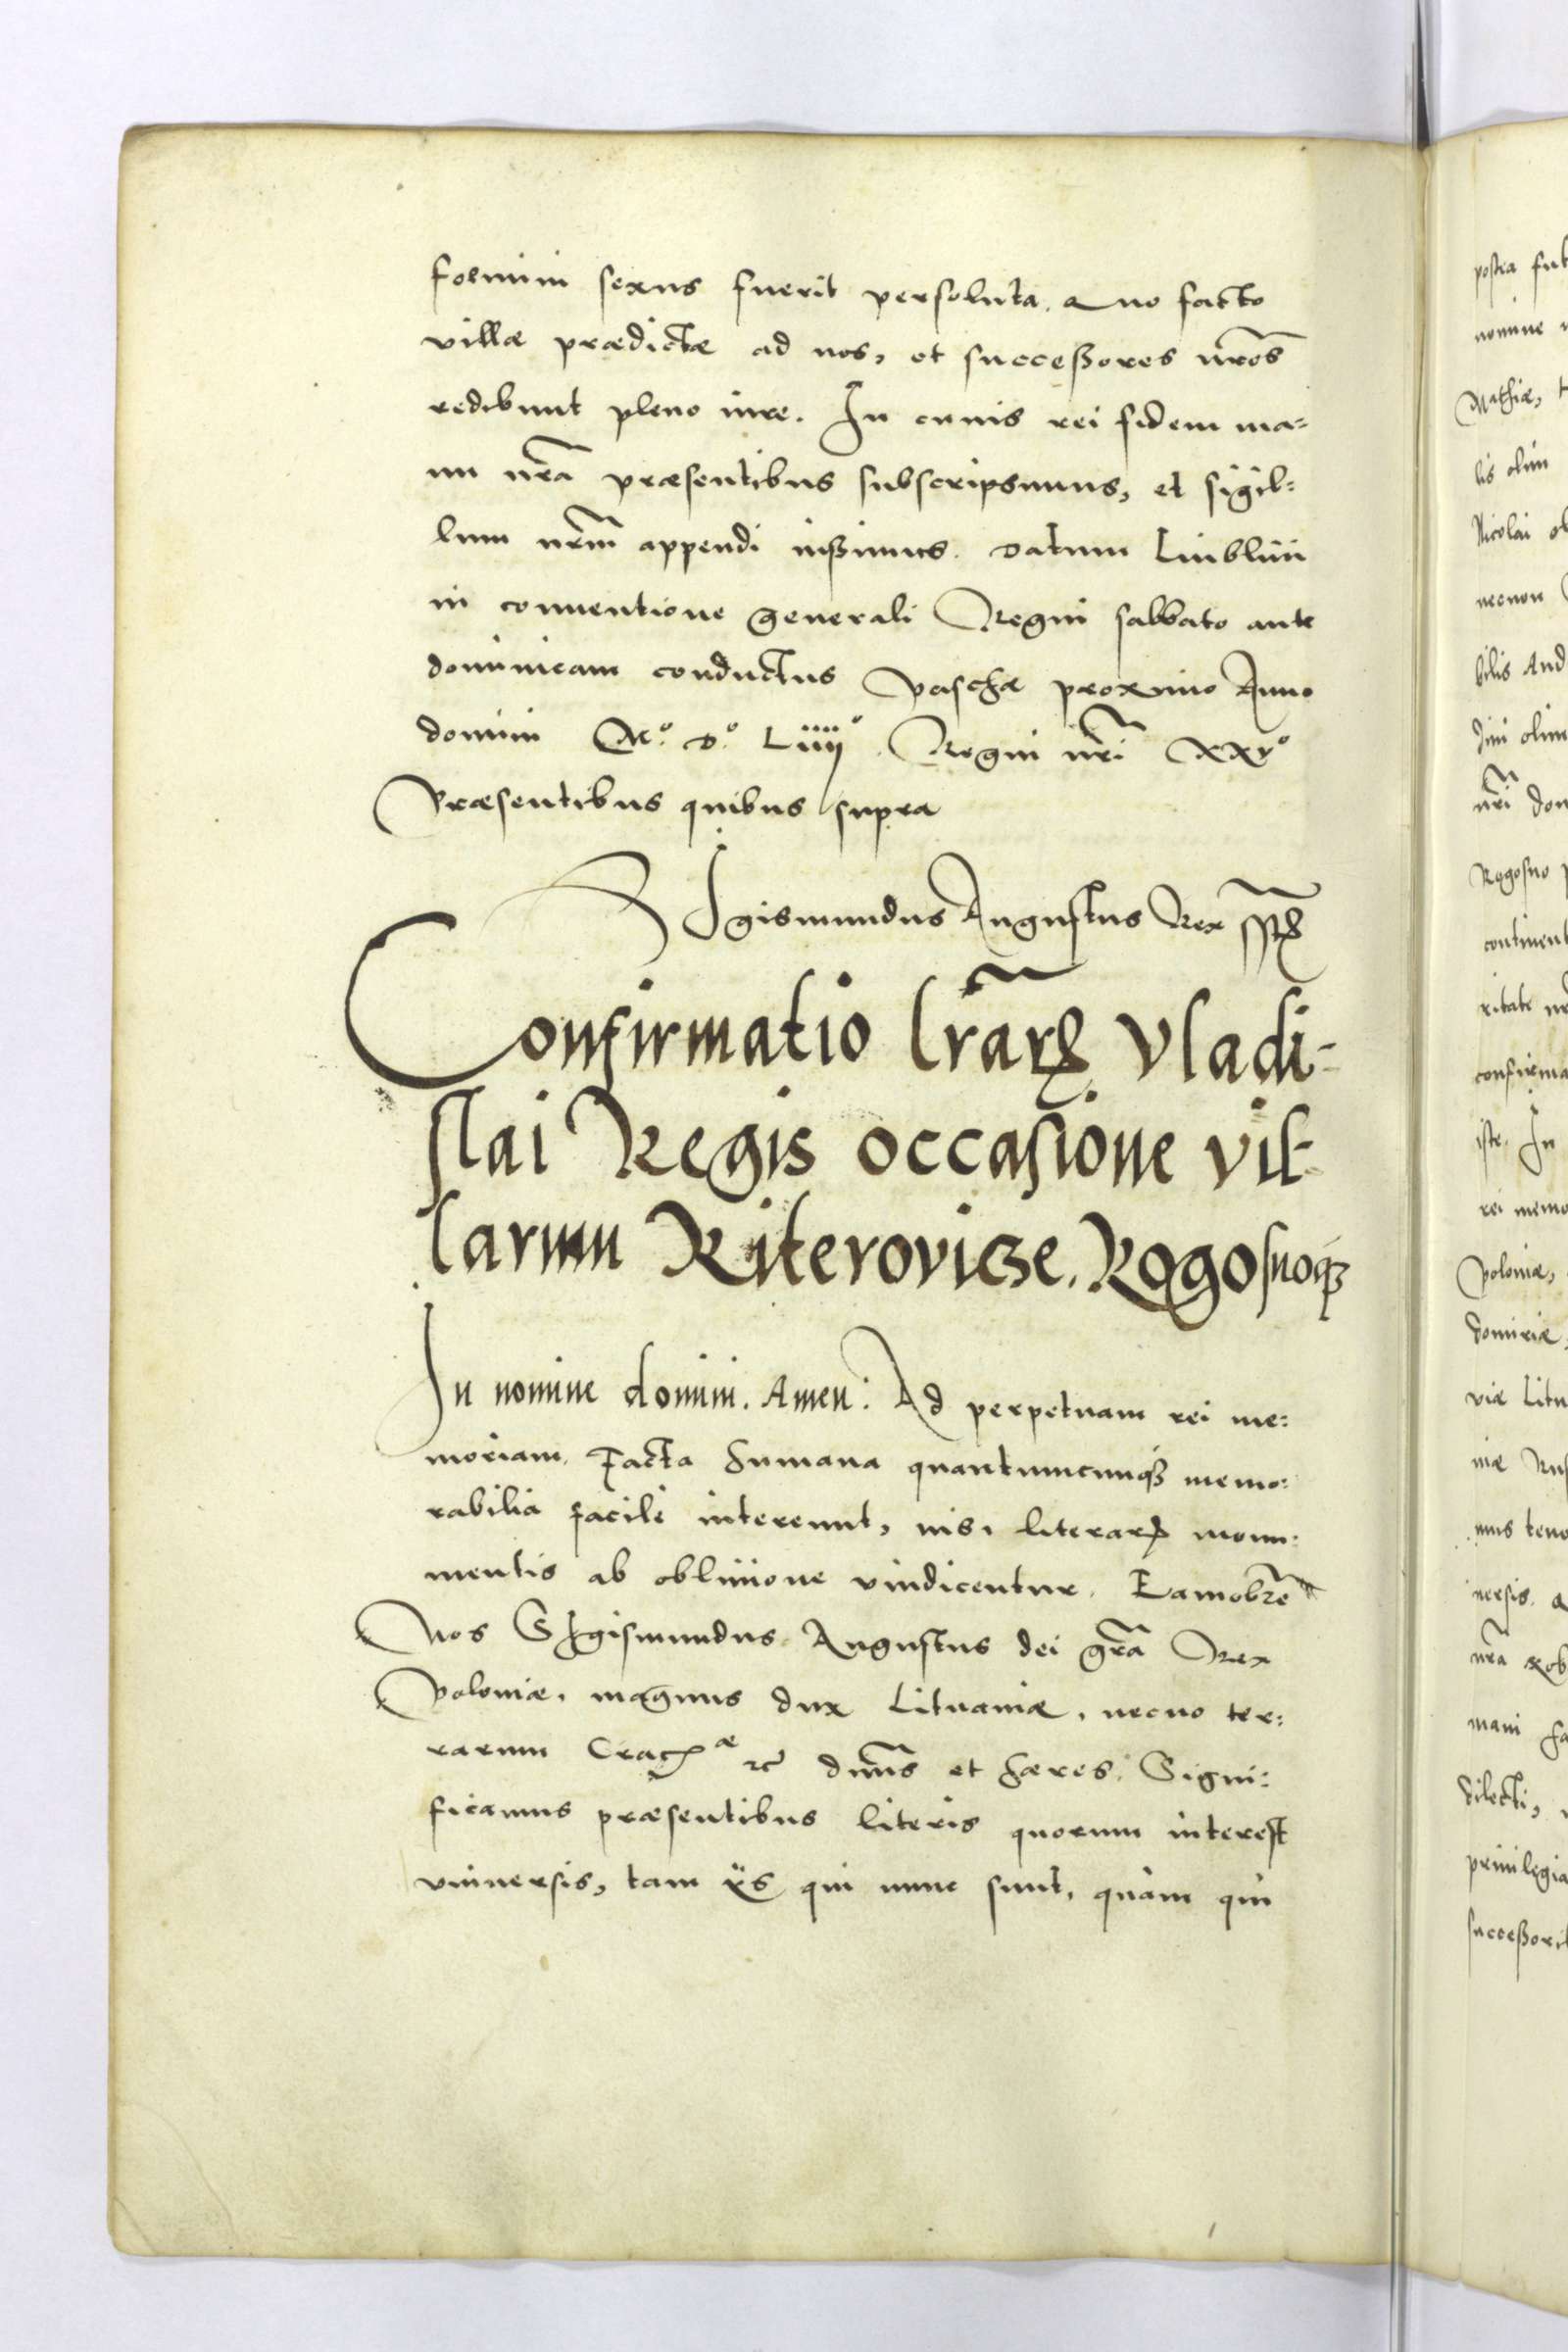 foemini sexus fuerit persoluta. Quo facto
villæ prædictæ ad nos, et successores nr̃os
redibunt pleno iure. In cuius rei fidem ma=
nu nr̃a præsentibus subscripsimus, et sigil=
lum nr̃m appendi iussimus. Datum Lublini
in conventione generali Regni sabbato ante
dominicam conductus Paschæ proximo Anno
domini Mº. Dº. Liiijº. Regni nr̃i XXVº
Præsentibus quibus supra
SIgismundus Augustus Rex
Confirmatio lr̃arꝝ Vladi-
slai Regis occasione vil-
larum Riterovicze. Rogosnoqꝫ
In nomine domini. Amen: Ad perpetuam rei me=
moriam. Facta humana quantumcunqꝫ memo=
rabilia facile intereunt, nisi literarꝝ monu=
mentis ab obliuione vindicentur. Eamobrẽ
Nos SIgismundus Augustus dei gr̃a Rex
Poloniæ, magnus dux Lituaniæ, necno ter=
rarum Cracꝭæ etc̃ dnñs et hæres. Signi=
ficamus præsentibus literis quorum interest
vniuersis, tam ijs qui nunc sunt, quàm qui
postea fut
nomine
Mathiæ,
lis olim
Nicolai
necnon
bilis And
dini olim
nr̃i don
Rogosno
continent
ritate
confirma
iste. In
rei memo
Poloniæ,
domiriæ
viæ Litu
niæ Rus
mus teno
uersis.
nr̃a
mani
dilecti,
priuilegia
successorib